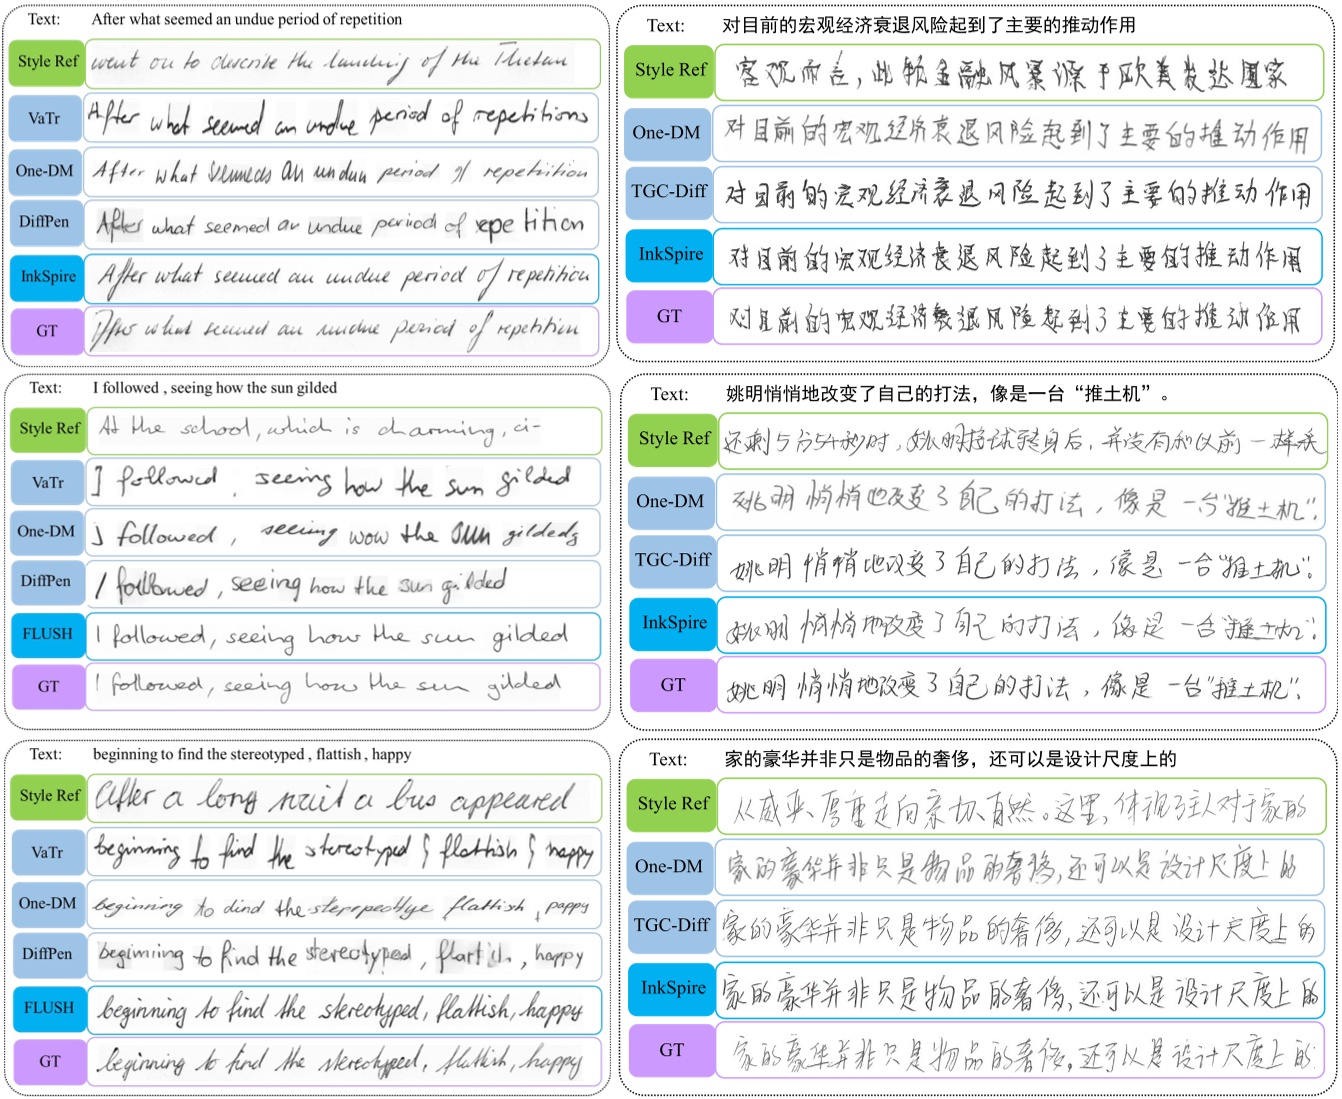 Text: After what seemed an undue period of repetition
Style Ref went on to describe the launching of the Thetan
VaTr After what seemed an undue period of repetitions
One-DM After what Senneds an undun period of repetition
DiffPen After what seemed an undue period of repetition
InkSpire After what seemed an undue period of repetition
GT After what seemed an undue period of repetition
Text: I followed , seeing how the sun gilded
Style Ref At the school, which is charming, ci-
VaTr I followed , seeing how the sun gilded
One-DM I followed , seeing wow the sun gildeds
DiffPen I followed , seeing how the sun gilded
FLUSH I followed, seeing how the sun gilded
GT I followed, seeing how the sun gilded
Text: beginning to find the stereotyped , flattish , happy
Style Ref After a long wait a bus appeared
VaTr beginning to find the stereotyped , flattish , happy
One-DM beginning to dind the flattish , pappy
DiffPen beginning to find the stereotyped , , happy
FLUSH beginning to find the stereotyped, flattish, happy
GT beginning to find the stereotyped, flattish, happy
Text: 对目前的宏观经济衰退风险起到了主要的推动作用
Style Ref 客观而言，此轮金融风暴源于欧美发达国家
One-DM 对目前的宏观经济衰退风险起到了主要的推动作用
TGC-Diff 对目前的宏观经济衰退风险起到了主要的推动作用
InkSpire 对目前的宏观经济衰退风险起到了主要的推动作用
GT 对目前的宏观经济衰退风险起到了主要的推动作用
Text: 姚明悄悄地改变了自己的打法，像是一台“推土机”。
Style Ref 还剩5分54秒时，姚明接球转身后，并没有和以前一样杀
One-DM 姚明悄悄地改变了自己的打法，像是一台“推土机”。
TGC-Diff 姚明悄悄地改变了自己的打法，像是一台“推土机”。
InkSpire 姚明悄悄地改变了自己的打法，像是一台“推土机”。
GT 姚明悄悄地改变了自己的打法，像是一台“推土机”。
Text: 家的豪华并非只是物品的奢侈，还可以是设计尺度上的
Style Ref 从威严、厚重走向亲切、自然。这里，体现了主人对于家的
One-DM 家的豪华并非只是物品的奢侈，还可以是设计尺度上的
TGC-Diff 家的豪华并非只是物品的奢侈，还可以是设计尺度上的
InkSpire 家的豪华并非只是物品的奢侈，还可以是设计尺度上的
GT 家的豪华并非只是物品的奢侈，还可以是设计尺度上的